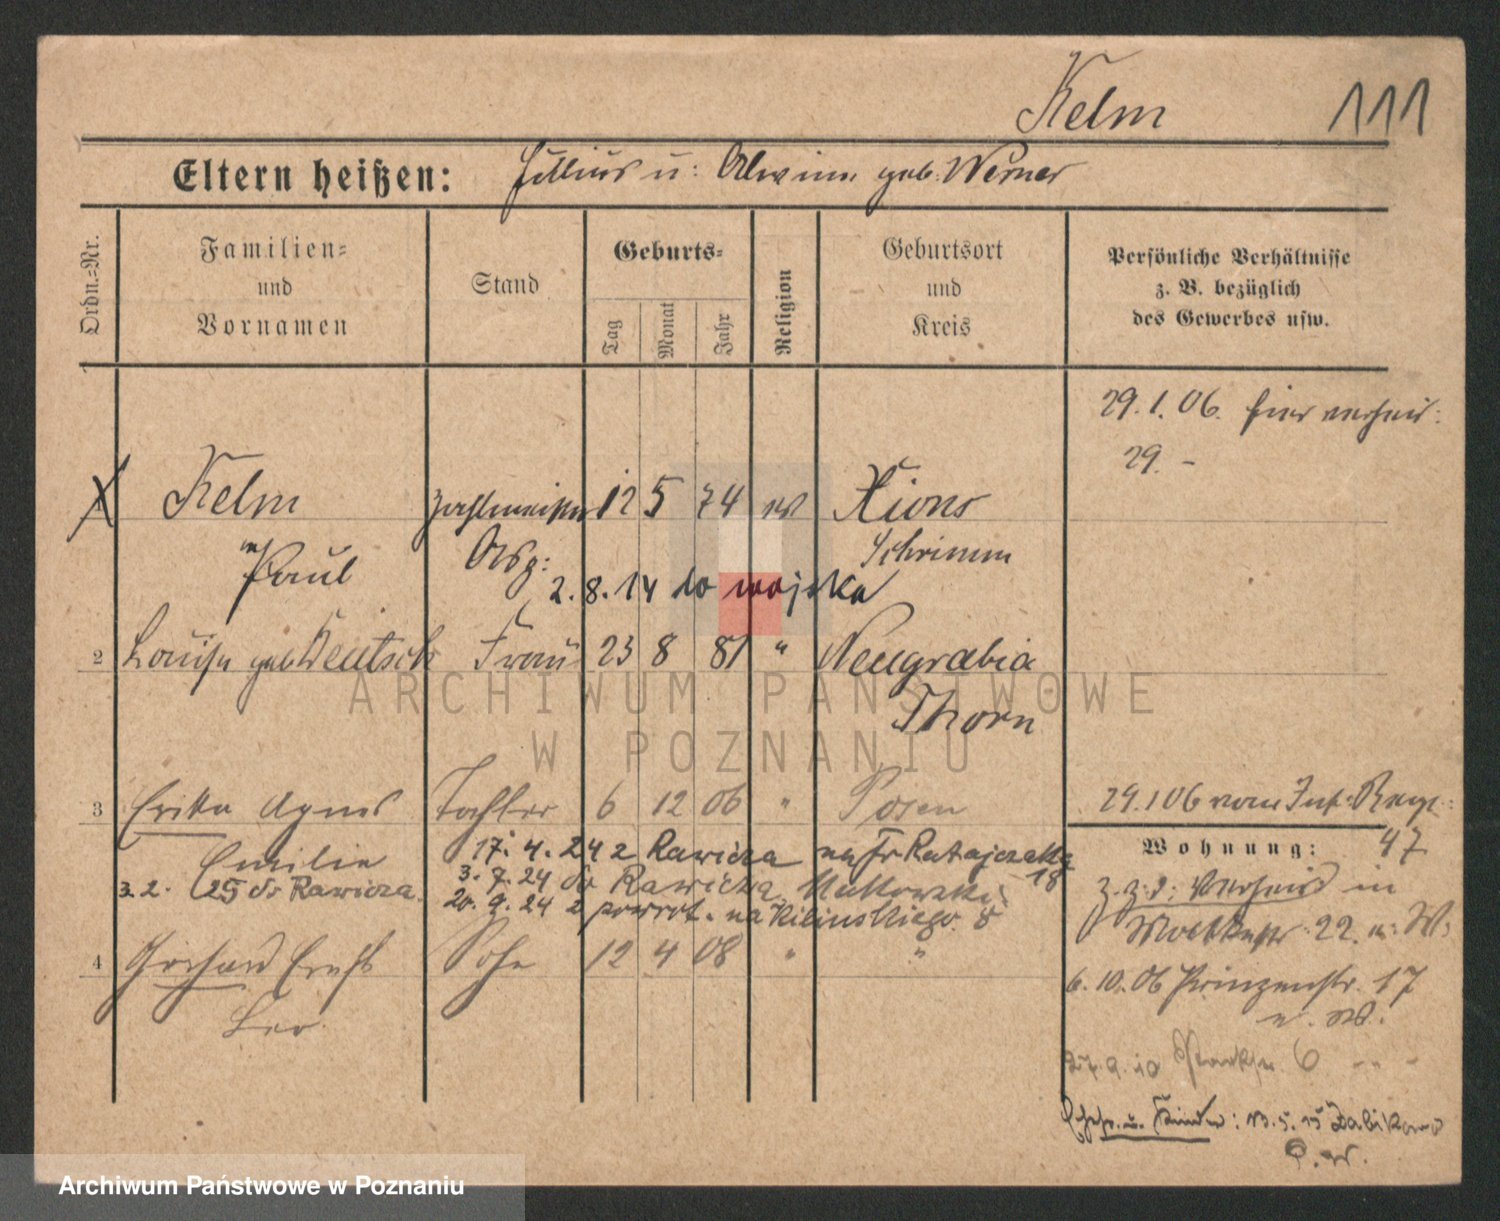 Kelm 111
Eltern heißen: Julius u: Alwine geb. Werner
Ordn.=Nr.
Familien= und Vornamen
Stand
Geburts=
Tag Monat Jahr
Religion
Geburtsort und Kreis
Persönliche Verhältnisse z. B. bezüglich des Gewerbes usw.
29.1.06. hier verheir:
29. -
1 Kelm Zahlmeister 12 5 74 ev Xions
Paul Asp: Schrimm
2.8.14 do wojska
2 Louise geb Deutsch Frau 23 8 81 " Neugrabia
Thorn
3 Erika Agnes Tochter 6 12 06 " Posen
Emilie
29.1 06 vom Inf: Regt: 47
17.4.24 z Rawicza na Fr Ratajczaka 18
3.7.24 do Rawicza,
3.2. 25 do Rawicza.
20.9.24 z powrot. na Kilinskiego 8
4 Gerhard Ernst Sohn 12 4 08 " "
Leo
Wohnung:
in
Moltkestr 22. u. W.
6.10.06 Prinzenstr. 17
u. W.
27.9.10 6 " -
Ehefr. u. Kinder: 13.5.15 Zabikowo
ARCHIWUM PAŃSTWOWE
W POZNANIU
Archiwum Państwowe w Poznaniu